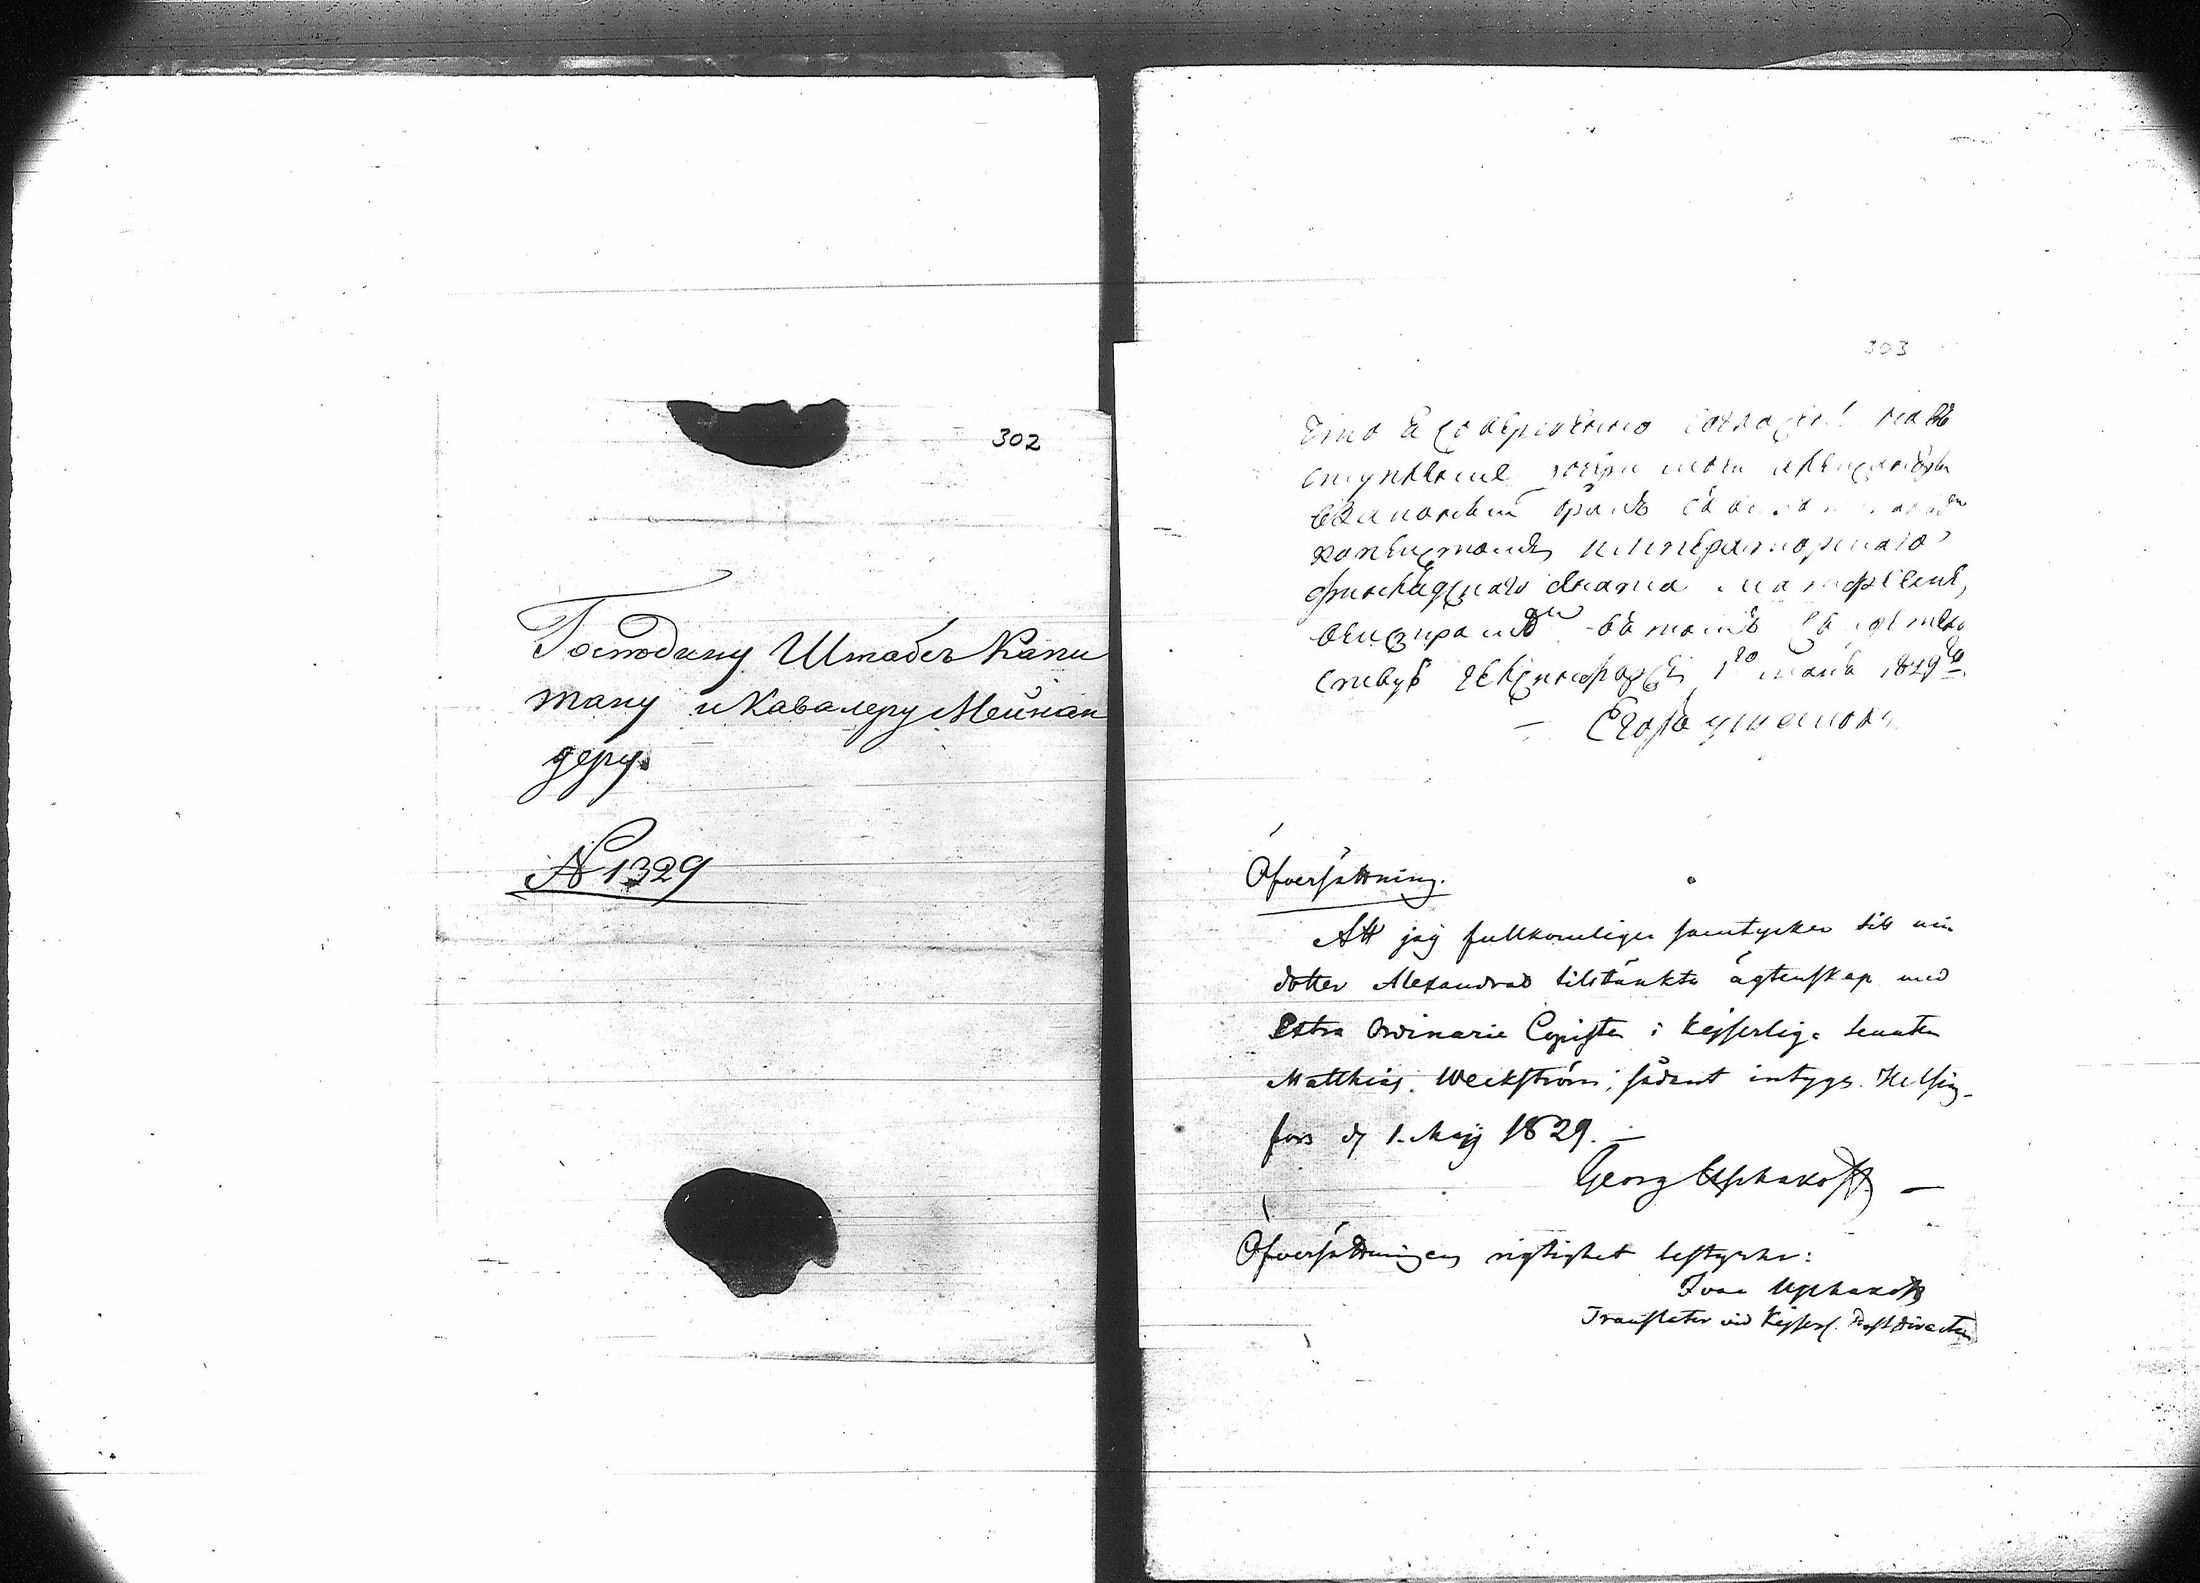 302
Господину Штабсъ Капи
тану и Кавалеру Мейнан
деру.
N 1329
303
что я совершенно согласенъ на въ
ступление дочери моей александры
въ законный бракъ съ
копеистомъ императорскаго
финляндскаго сената матфеемъ
векстромъ въ томъ свидетель
ствую гелсингфорсъ 1го маия 1829го
Егоръ ушаковъ
Öfversättning.
Att jag fullkomligen samtycker till min
dotter Alexandras tilltänkta ägtenskap med
Extra Ordinarie Copisten i Kejserliga Senaten
Matthias Weckström, sådant intygas Helsing-
fors d 1. Maij 1829. —
Georg Uschakoff —
Öfversättningens rigtighet bestyrker:
Ivan Uschakoff
Translator vid Kejserl. Postdirection